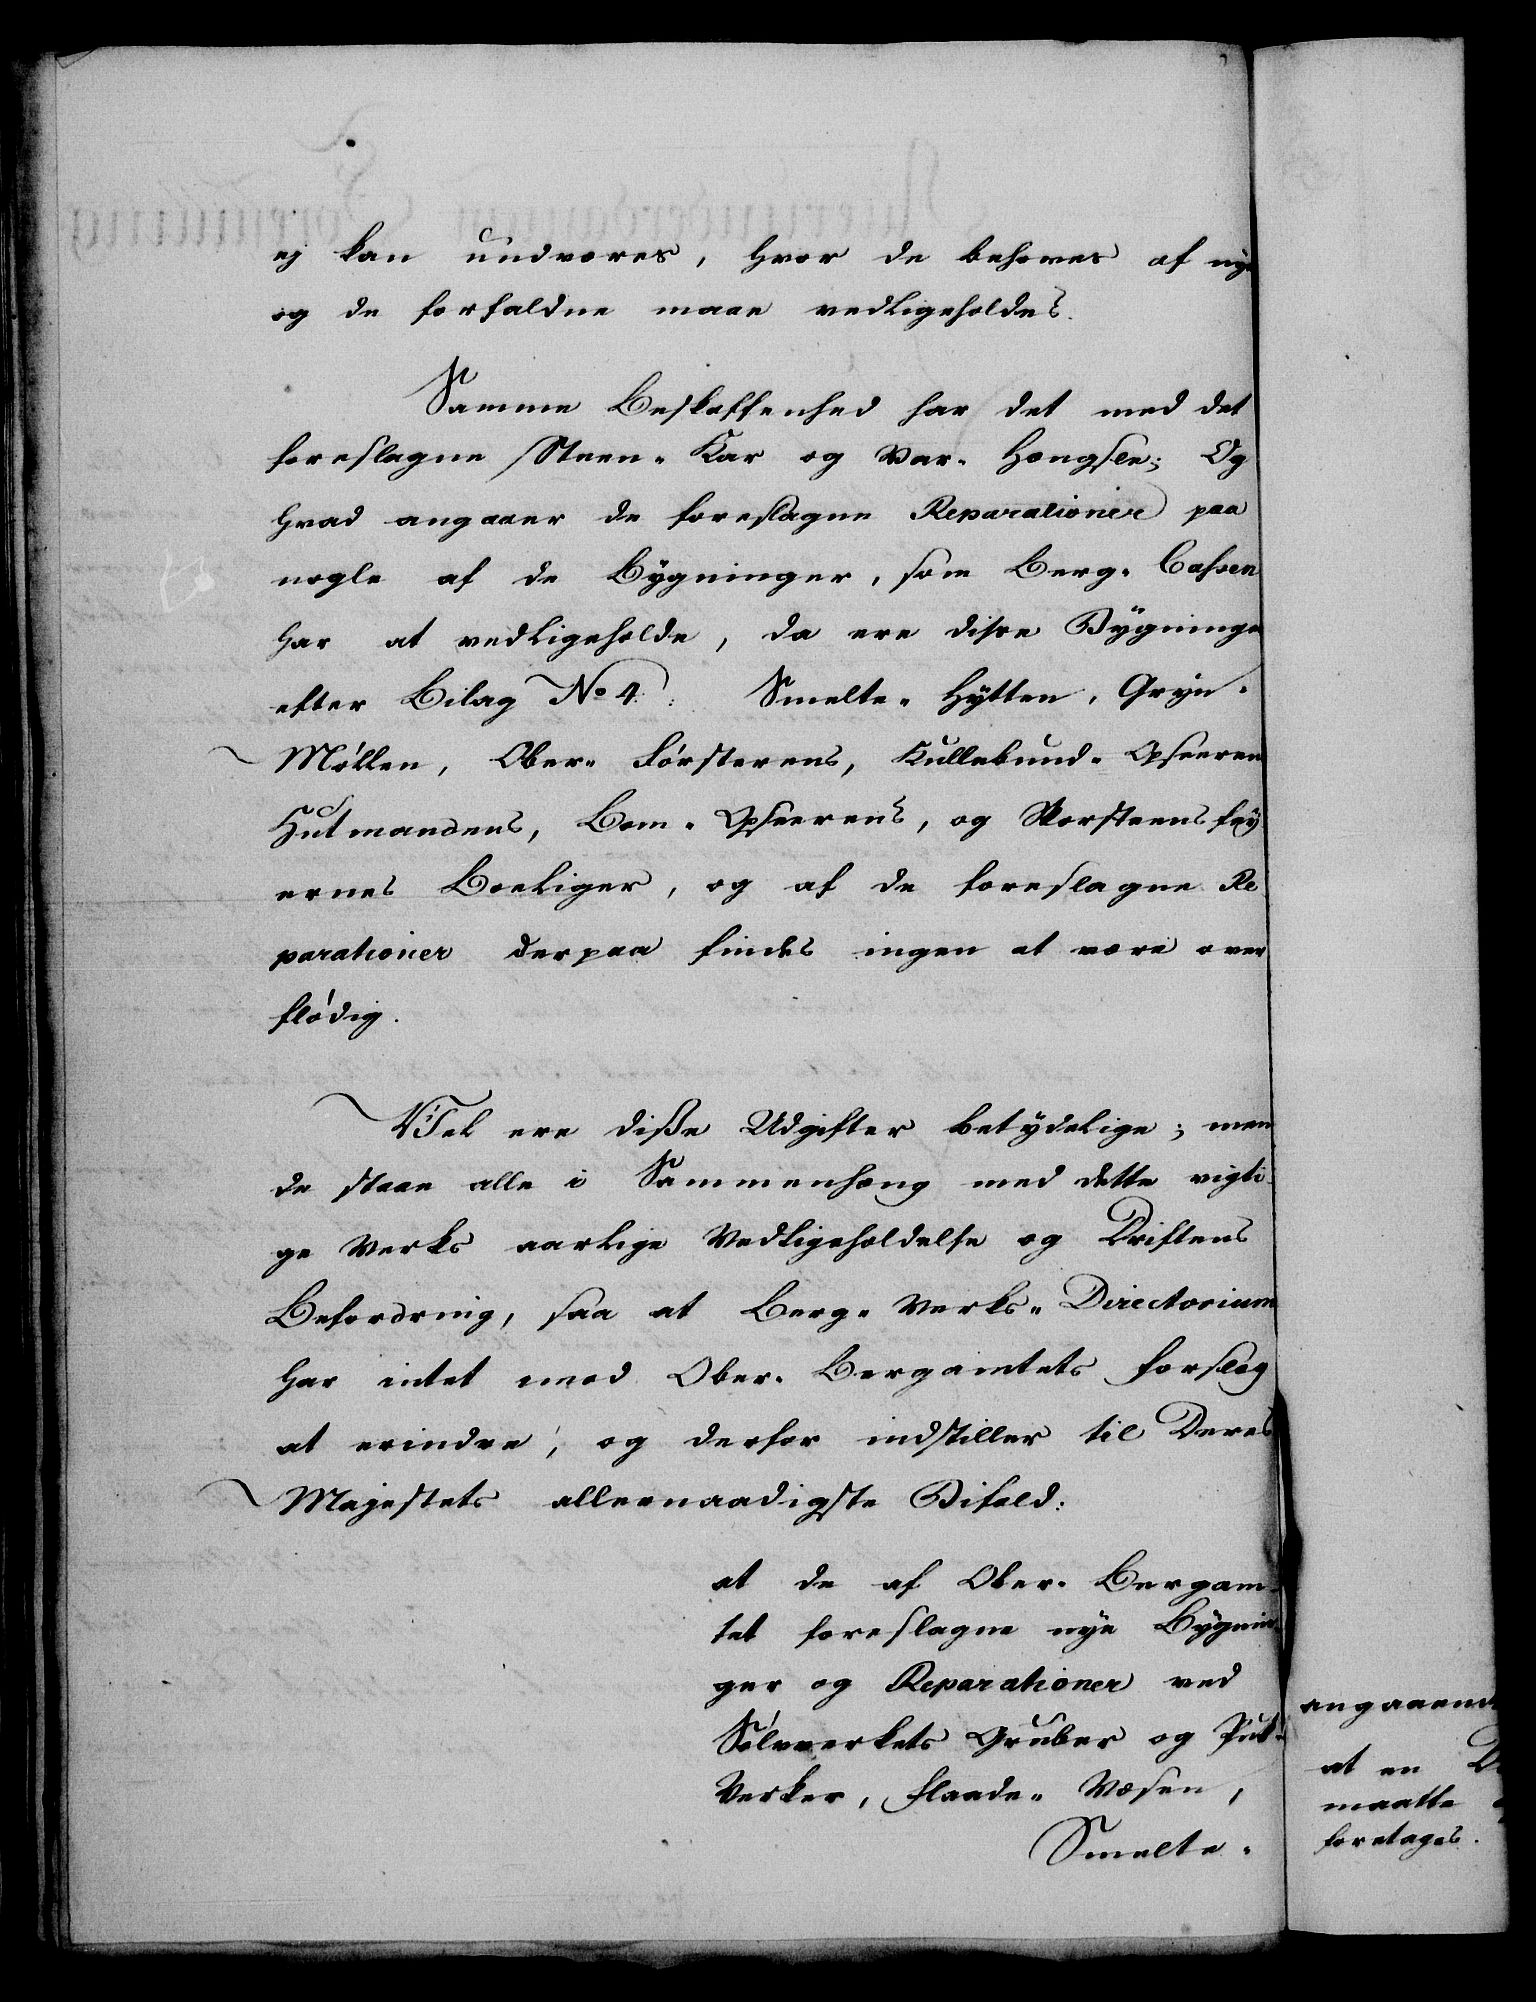 ej kan undværes, hvor de behøves af nye
og de forfaldne maae vedligeholdes.
Samme Beskaffenhed har det med det
foreslagne Steen-Kar og Var-Hængsle; Og
hvad angaaer de foreslagne Reparationer paa
nogle af de Bygninger, som Berg-Cassen
har at vedligeholde, da ere disse Bygninge
efter Bilag No 4: Smelte-Hytten, Gryn-
Møllen, Ober-Førsterens, Kullebund-Opseeren
Hutmandens, Bom-Opseerens, og Skorsteensfey
ernes Boeliger, og af de foreslagne Re
parationer derpaa findes ingen at være over
flødig.
Vel ere diße Udgifter betydelige; men
de staae alle i Sammenhæng med dette vigti-
ge Verks aarlige Vedligeholdelse og Driftens
Befordring, saa at Berg-Verks-Directorium
har intet mod Ober-Bergamtets Forslag
at erindre, og derfor indstiller til Deres
Majestets allernaadigste Bifald:
at de af Ober-Bergam-
tet foreslagne nye Bygnin-
ger og Reparationer ved
Sølvverkets Gruber og Puk-
Verker, Flaade-Væsen,
Smelte-
angaaende
at en
maatte
foretages.